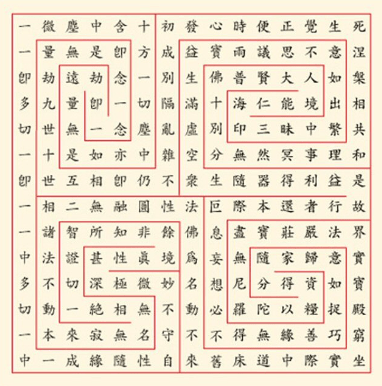 一微塵中含十初發心時便正覺生死
一量無是卽方成益寶雨議思不意涅
卽劫遠劫念一別生佛普賢大人如槃
多九量卽一切隔滿十海仁能境出相
切世無一念塵亂虛別印三昧中繁共
一十是如亦中雜空分無然冥事理和
卽世互相卽仍不衆生隨器得利益是
一相二無融圓性法叵際本還者行故
一諸智所知非餘佛息盡寶莊嚴法界
中法證甚性眞境爲妄無隨家歸意實
多不切深極微妙名想尼分得資如寶
切動一絕相無不動必羅陀以糧捉殿
一本來寂無名守不不得無緣善巧窮
中一成緣隨性自來舊床道中際實坐